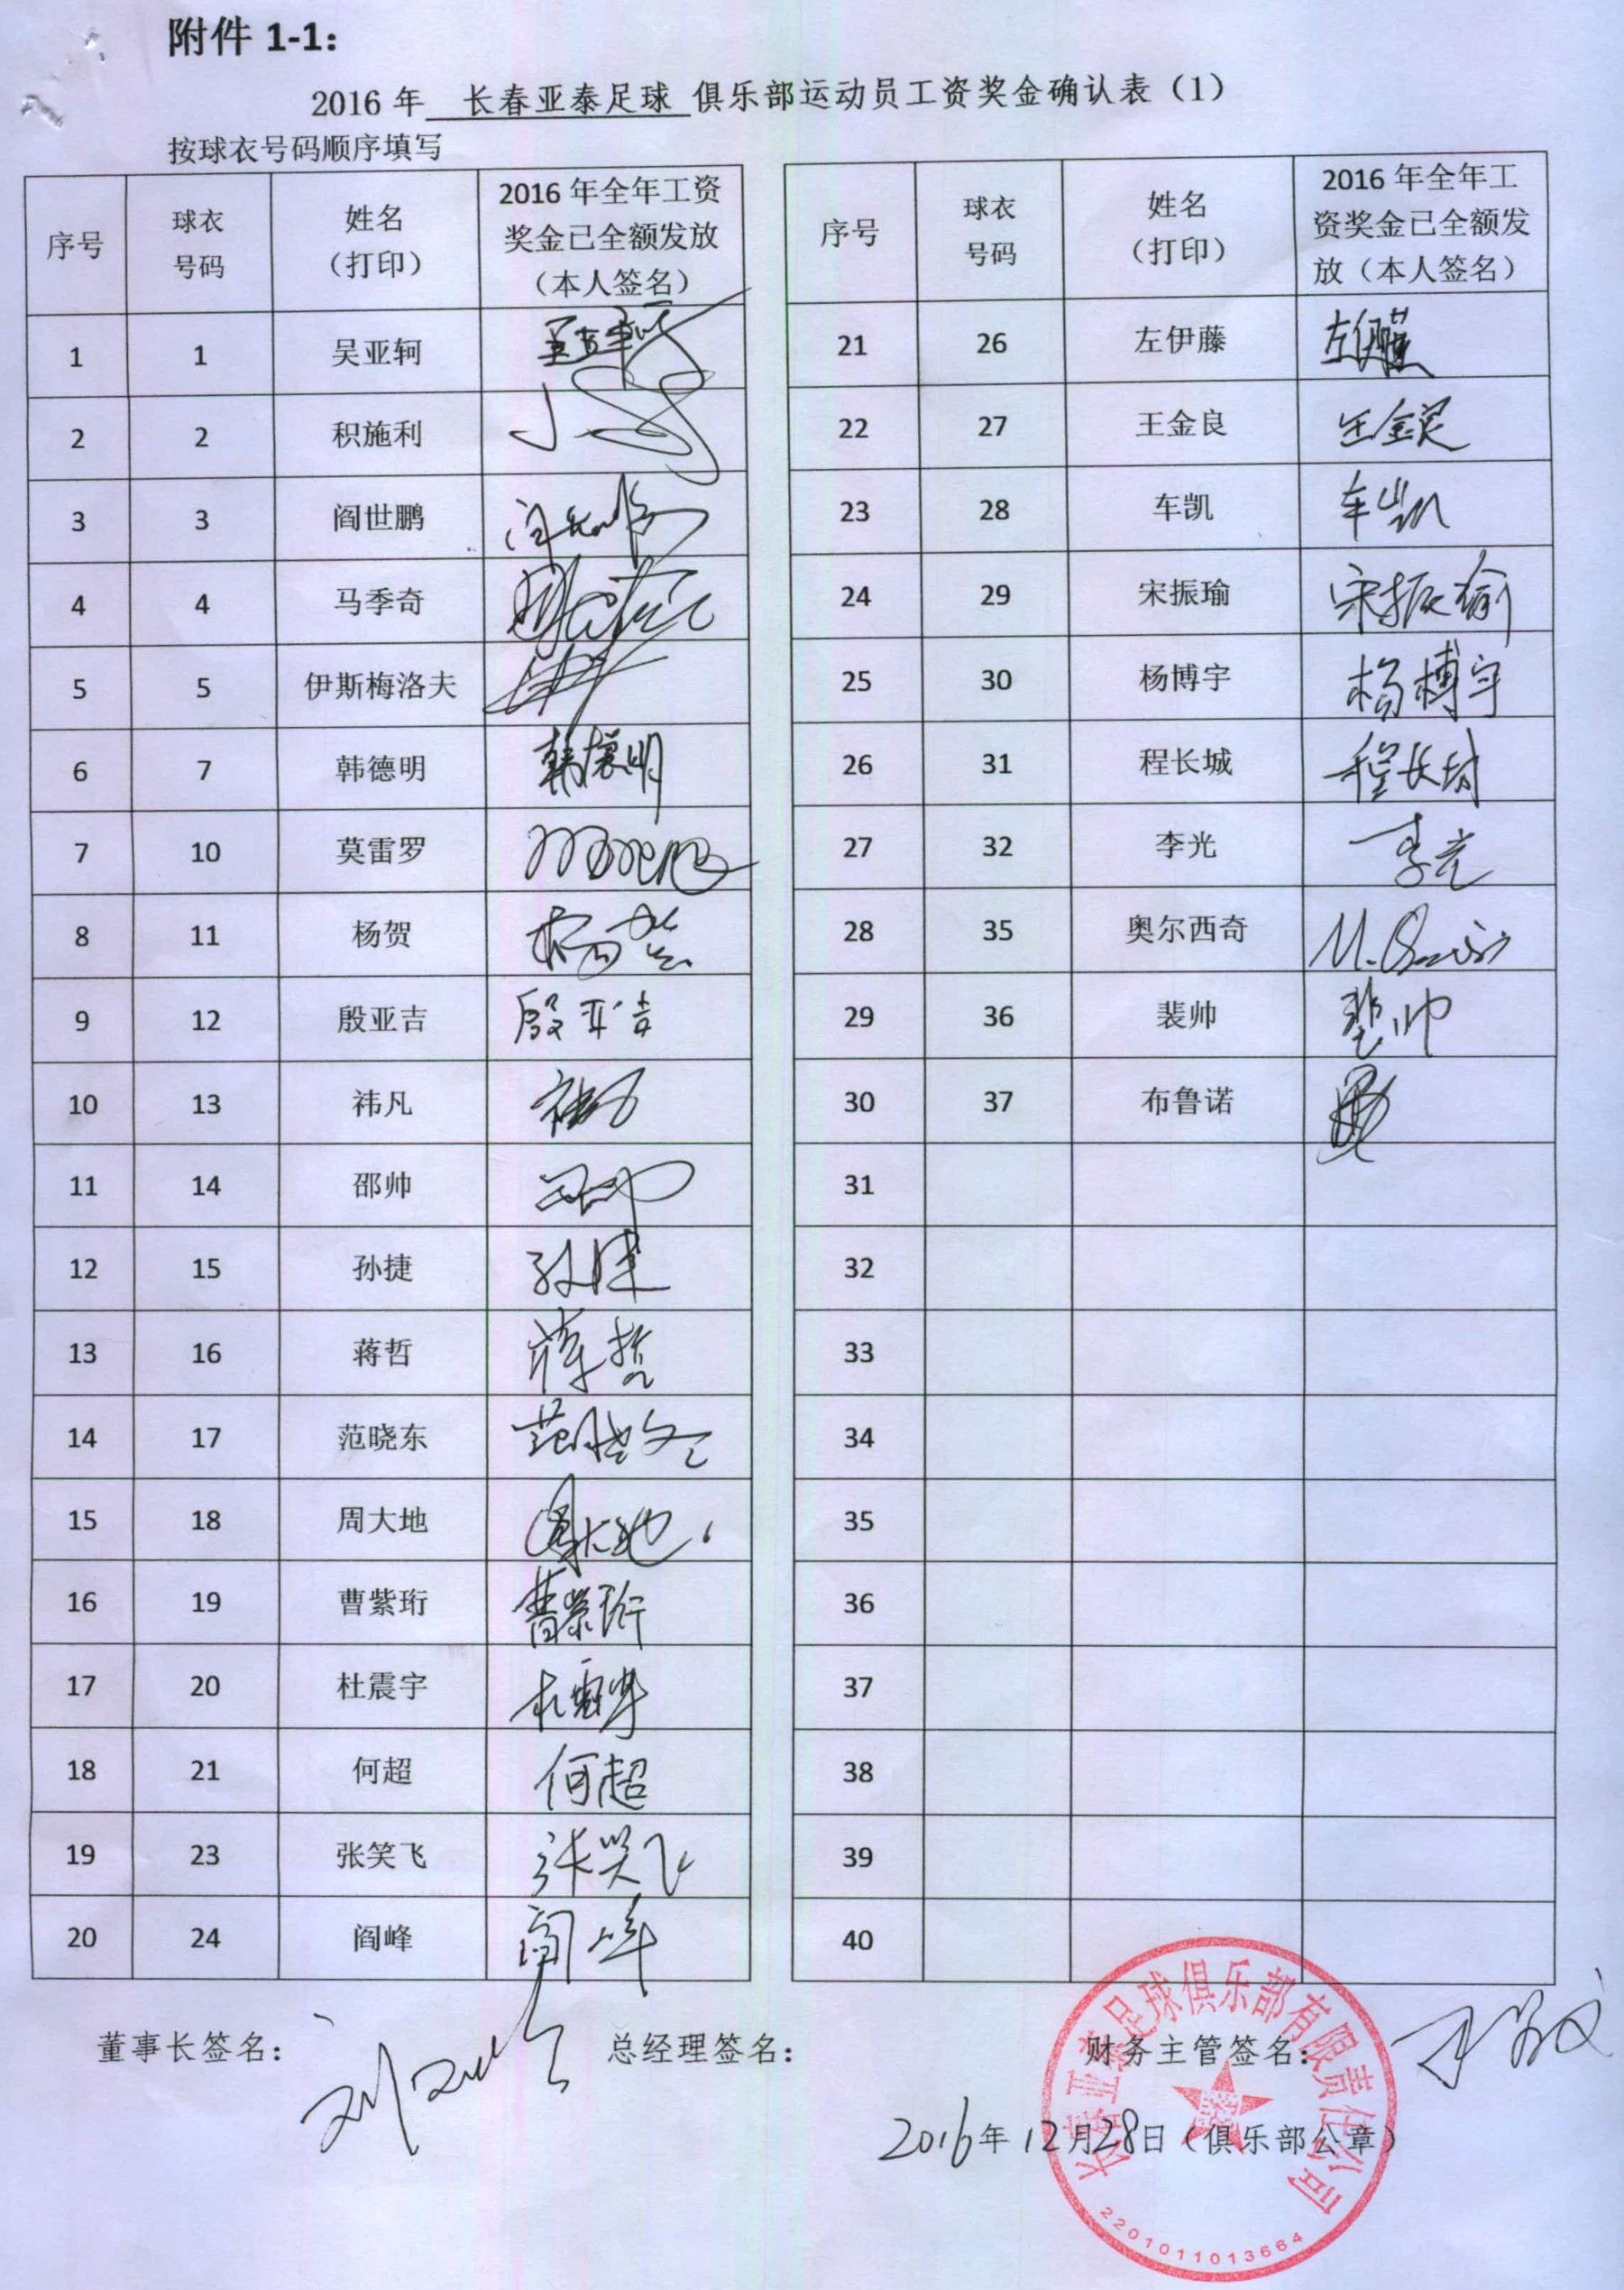 附件 1-1：
2016 年 长春亚泰足球 俱乐部运动员工资奖金确认表（1）
按球衣号码顺序填写
序号 球衣号码 姓名（打印） 2016 年全年工资奖金已全额发放（本人签名）
1 1 吴亚轲
2 2 积施利
3 3 阎世鹏
4 4 马季奇
5 5 伊斯梅洛夫
6 7 韩德明 韩德明
7 10 莫雷罗
8 11 杨贺 杨贺
9 12 殷亚吉 殷亚吉
10 13 祎凡
11 14 邵帅
12 15 孙捷 孙捷
13 16 蒋哲 蒋哲
14 17 范晓东 范晓东
15 18 周大地 周大地
16 19 曹紫珩 曹紫珩
17 20 杜震宇 杜震宇
18 21 何超 何超
19 23 张笑飞 张笑飞
20 24 阎峰 阎峰
序号 球衣号码 姓名（打印） 2016 年全年工资奖金已全额发放（本人签名）
21 26 左伊藤 左伊藤
22 27 王金良 王金良
23 28 车凯 车凯
24 29 宋振瑜 宋振瑜
25 30 杨博宇 杨博宇
26 31 程长城 程长城
27 32 李光 李光
28 35 奥尔西奇
29 36 裴帅 裴帅
30 37 布鲁诺
31
32
33
34
35
36
37
38
39
40
董事长签名： 总经理签名： 财务主管签名：
2016年12月28日（俱乐部公章）
长春亚泰足球俱乐部有限责任公司
2201011013664